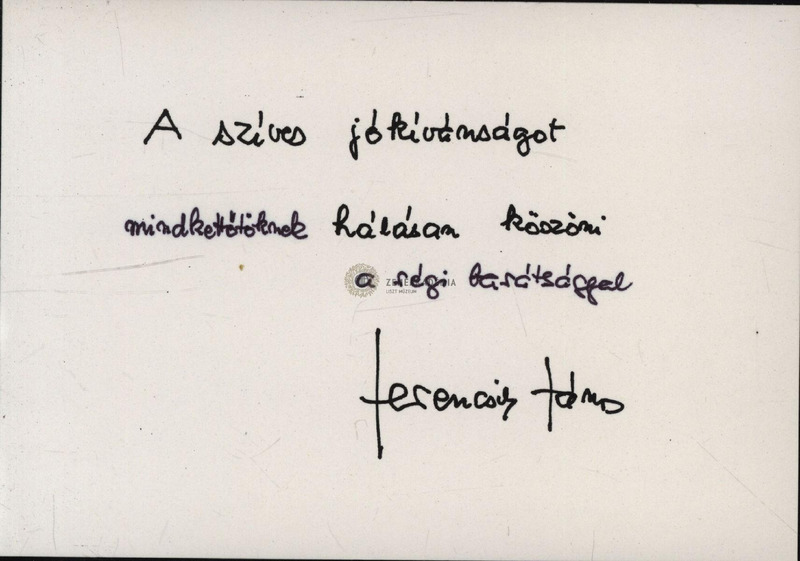 A szíves jókívánságot
mindkettőtöknek hálásan köszöni
a régi barátsággal
ZENEAKADÉMIA
LISZT MÚZEUM
Ferencsik János